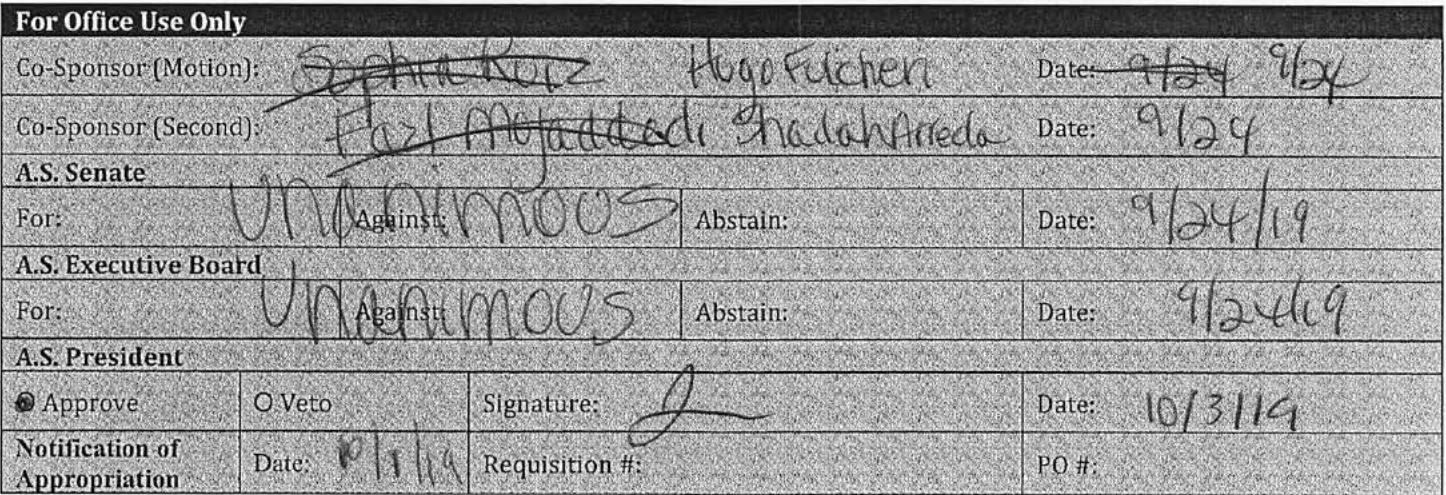 For Office Use Only
Co-Sponsor (Motion): Sophia Ruiz Hugo Fulcheri Date: 9/24 9/24
Co-Sponsor (Second): Fazl Mojaddadi Shadah Arreda Date: 9/24
A.S. Senate
For: Unanimous Against: Abstain: Date: 9/24/19
A.S. Executive Board
For: Unanimous Against: Abstain: Date: 9/24/19
A.S. President
Approve O Veto Signature: Date: 10/3/19
Notification of
Appropriation Date: Requisition #: PO #: